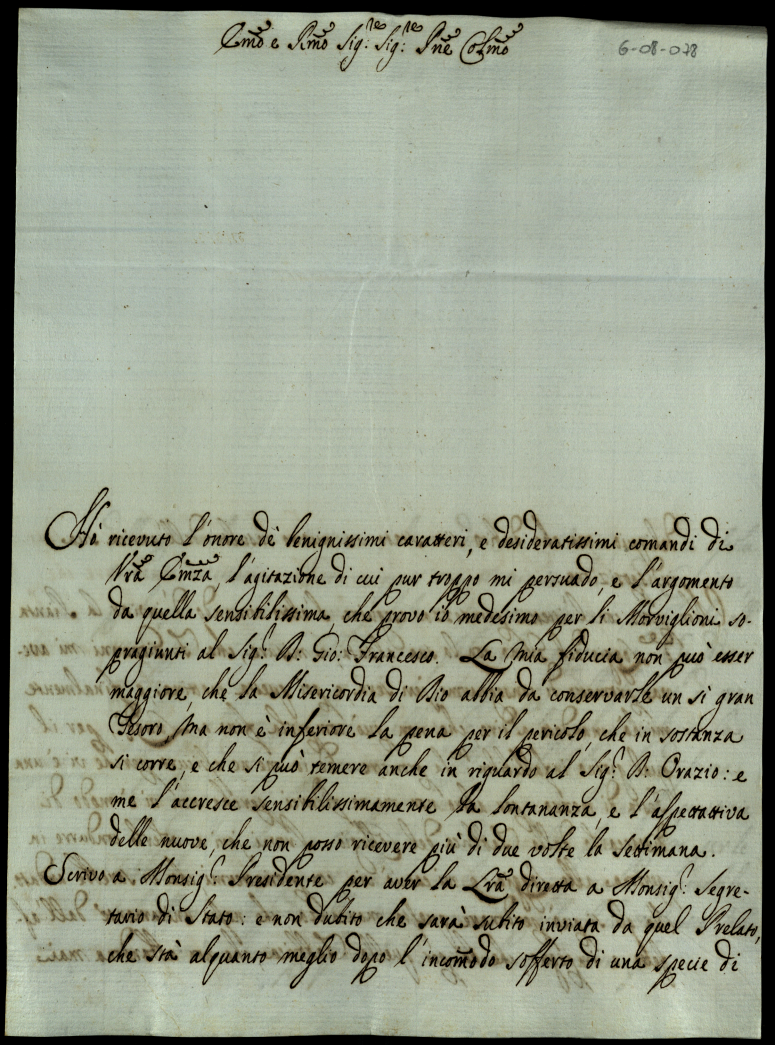 Emõ e Rmõ Sig:re Sig:re Pne Colmõ
6-08-078
Hò ricevuto l'onore dè benignissimi caratteri, e desideratissimi comandi di
Vrã Emzã, l'agitazione di cui pur troppo mi persuado, e l'argomento
da quella sensibilissima che provo io medesimo per li Morviglioni so-
pragiunti al Sig.r B: Gio: Francesco. La mia fiducia non può esser
maggiore, che la Misericordia di Dio abbia da conservarle un sì gran
Tesoro, ma non è inferiore la pena per il pericolo, che in sostanza
si corre, e che si può temere anche in riguardo al Sig.r B: Orazio: e
me l'accresce sensibilissimamente la lontananza, e l'aspettativa
delle nuove, che non posso ricevere più di due volte la settimana.
Scrivo a Monsig.r Presidente per aver la Lrã diretta a Monsig.r Segre-
tario di Stato: e non dubito che sarà subito inviata da quel Prelato,
che stà alquanto meglio dopo l'incomõdo sofferto di una specie di